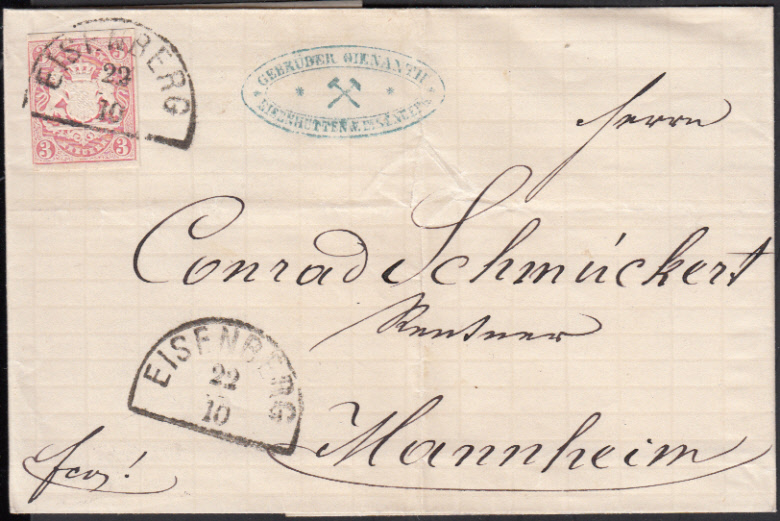 3 3
3 3
EISENBERG
22
10
GEBRÜDER GIENANTH
EISENHÜTTEN
Herrn
Conrad Schmückert
Rentner
Mannheim
EISENBERG
22
10
frco!